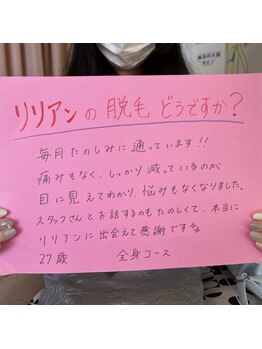 リリアンの脱毛どうですか?
毎月たのしみに通っています!!
痛みもなく、しっかり減っているのが
目に見えてわかり、悩みもなくなりました。
スタッフさんとお話するのもたのしくて、本当に
リリアンに出会えて感謝です☆
27歳 全身コース